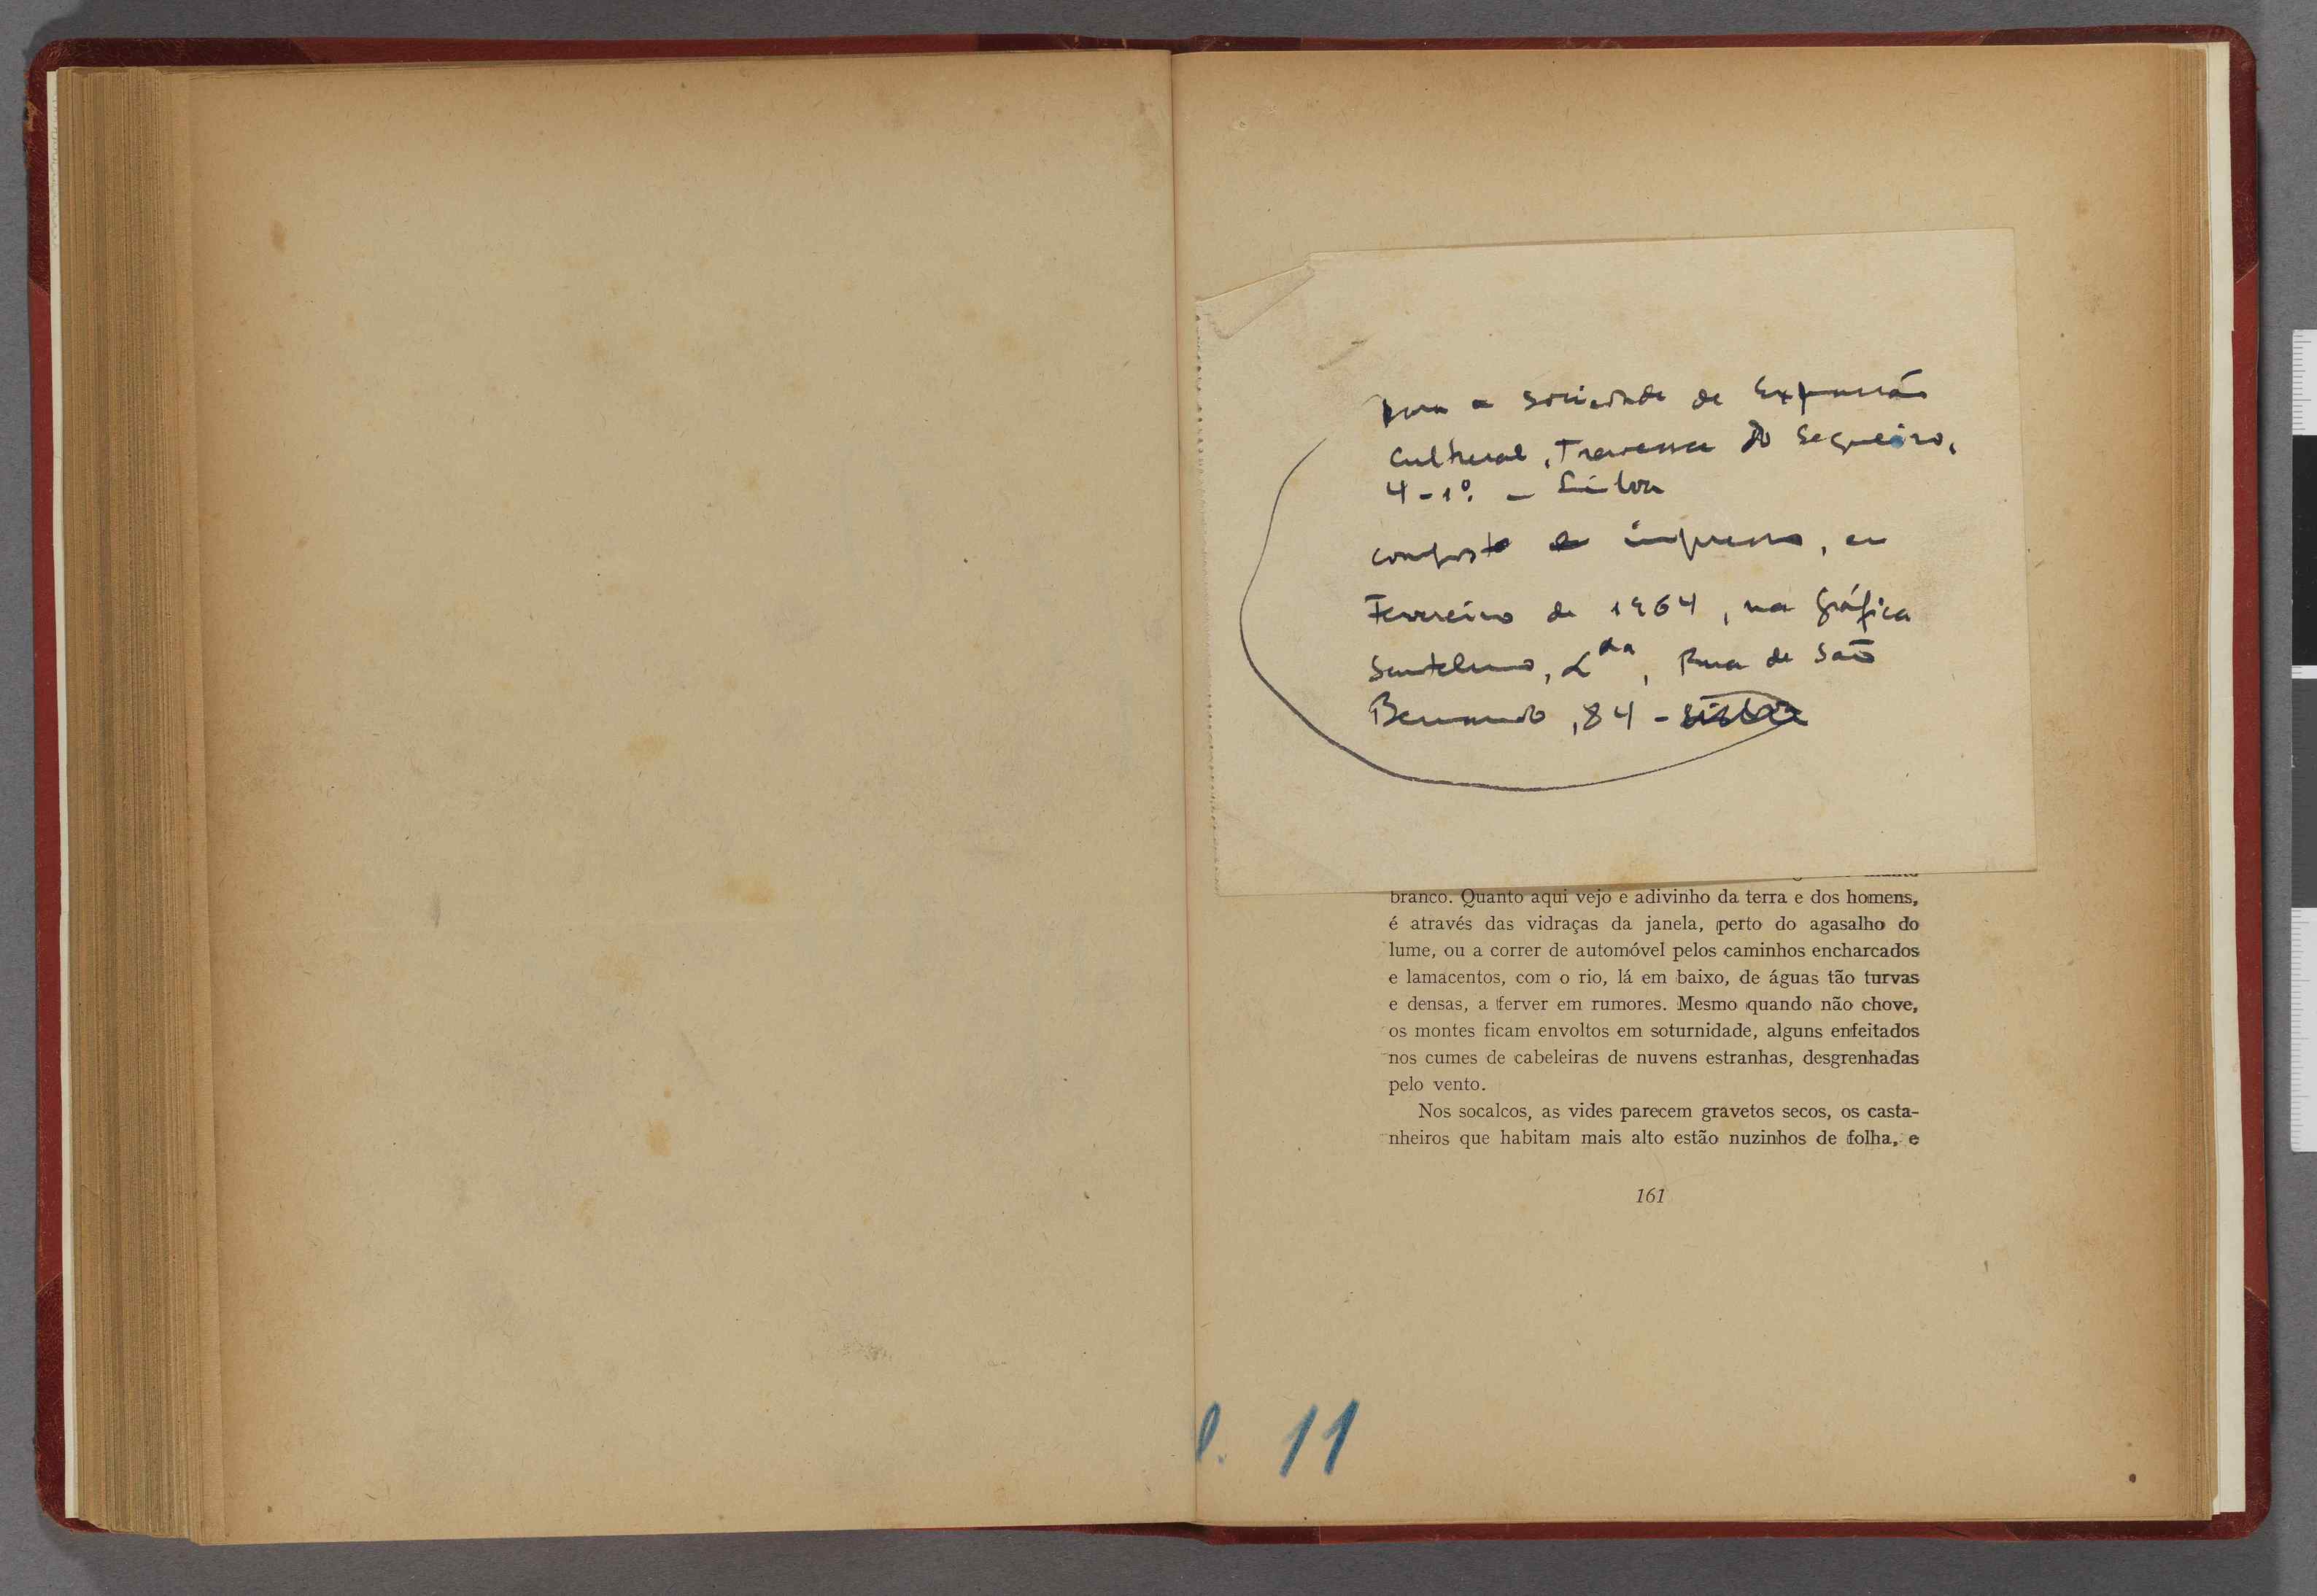 para a Sociedade de Expansão
Cultural, Travessa do Sequeiro,
4-1º. - Lisboa
composto e impresso, em
Fevereiro de 1964, na Gráfica
Santelmo, Lda, Rua de São
Bernardo, 84 - Lisboa
branco. Quanto aqui vejo e adivinho da terra e dos homens,
é através das vidraças da janela, perto do agasalho do
lume, ou a correr de automóvel pelos caminhos encharcados
e lamacentos, com o rio, lá em baixo, de águas tão turvas
e densas, a ferver em rumores. Mesmo quando não chove,
os montes ficam envoltos em soturnidade, alguns enfeitados
nos cumes de cabeleiras de nuvens estranhas, desgrenhadas
pelo vento.
Nos socalcos, as vides parecem gravetos secos, os casta-
nheiros que habitam mais alto estão nuzinhos de folha, e
161
11